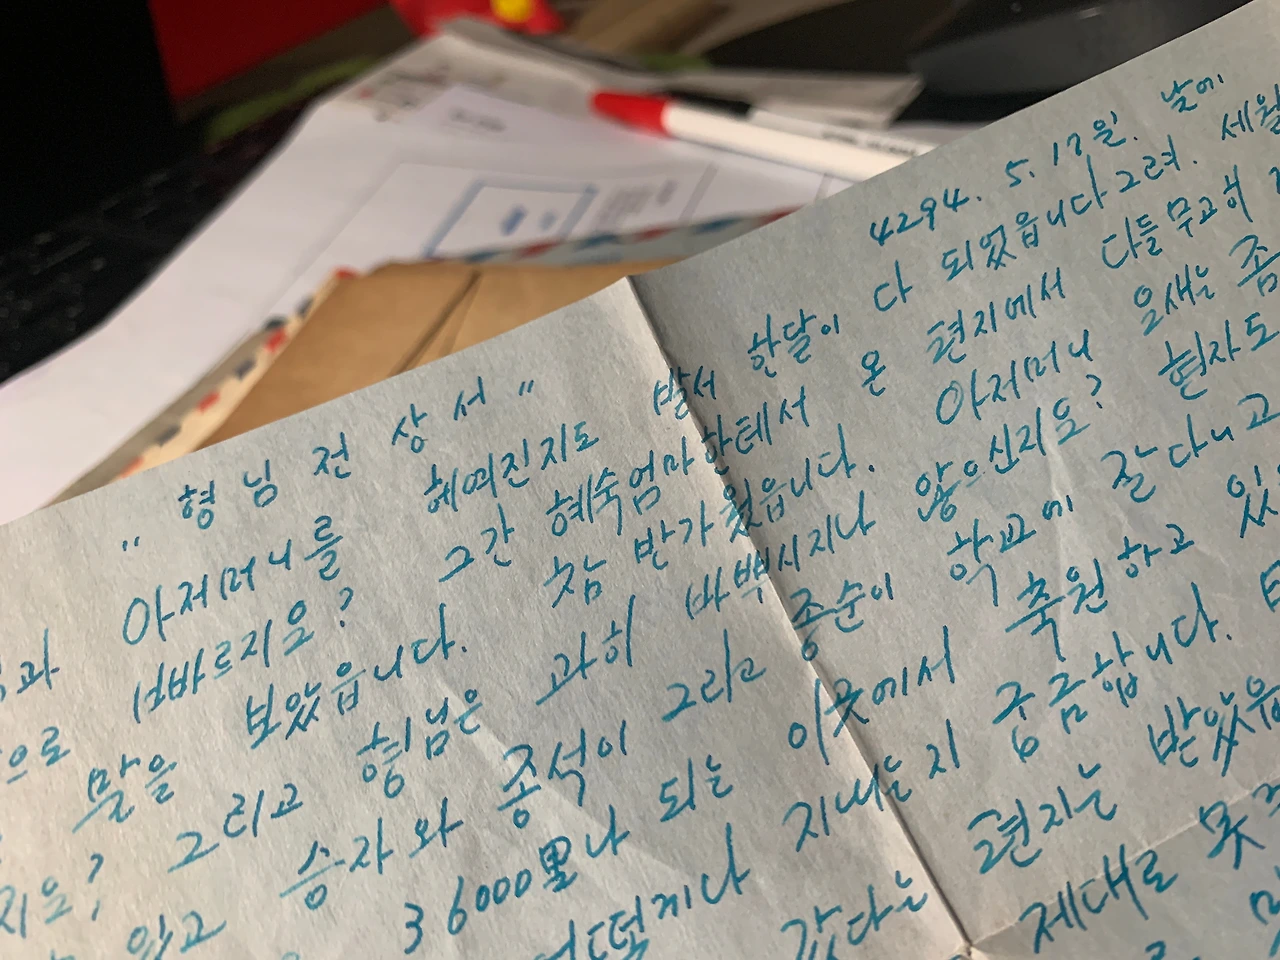 “형님 전 상서” 4294. 5. 17일. 날에
과 아저머니를 헤여진지도 발서 한달이 다 되었읍니다그려. 세월
으로 그간 혜숙엄마한테서 온 편지에서 다들 무고히
말을 보았읍니다. 참 반가웠읍니다. 아저머니 요새는 좀
지요? 그리고 형님은 과히 바쁘시지나 않으신지요? 현자도
있고 승자와 종석이 그리고 종순이 학교에 잘다니고
36000里나 되는 이곳에서 축원하고 있
어떻게나 지내는지 궁금합니다.
갔다는 편지는 받었읍
제대로 못